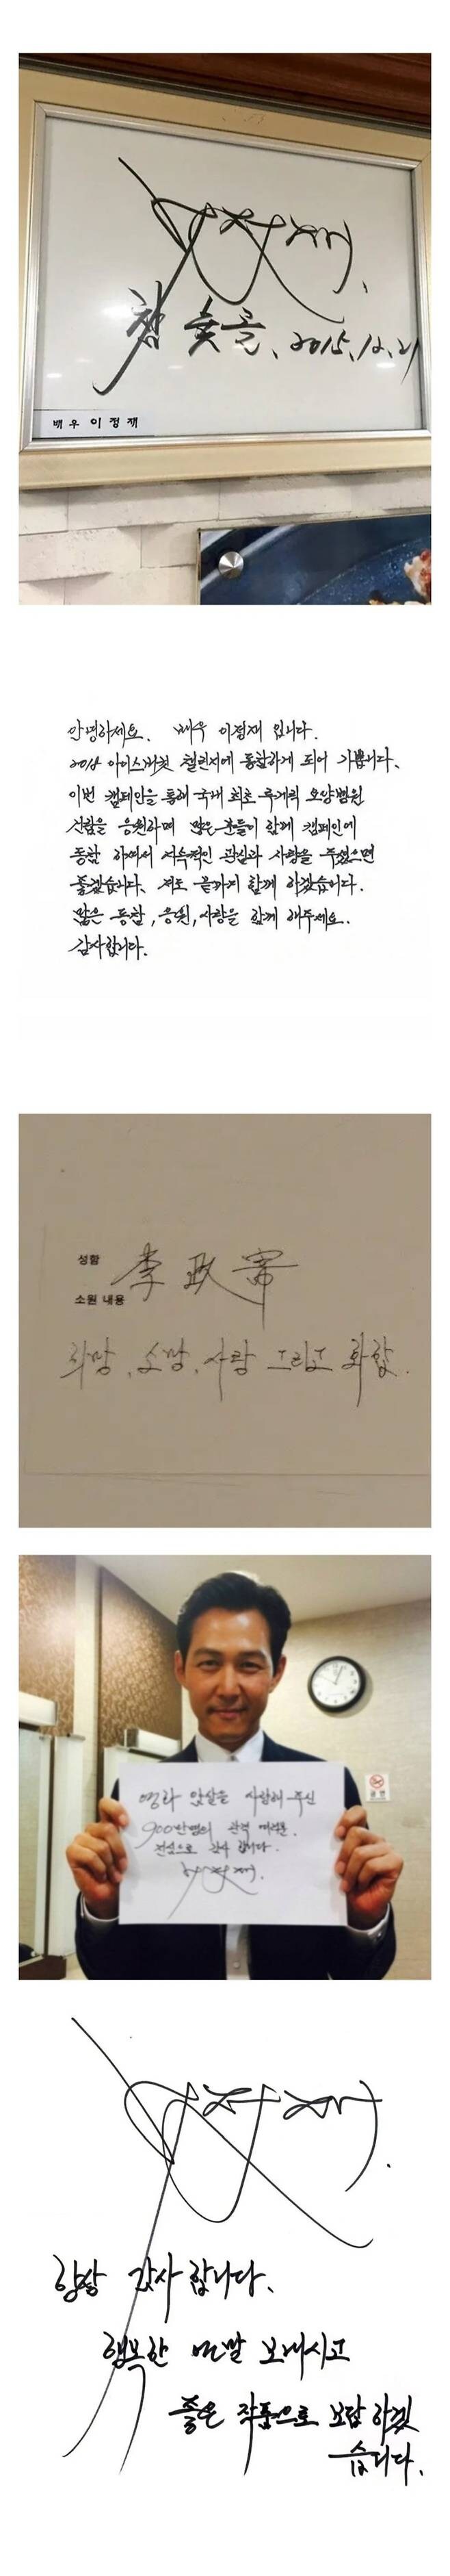 참숯골, 2015.12.21
배우 이정재
안녕하세요. 배우 이정재 입니다.
2018 아이스버킷 챌린지에 동참하게 되어 기쁩니다.
이번 캠페인을 통해 국내 최초 루게릭 요양병원
건립을 응원하며 많은 분들이 함께 캠페인에
동참 하여서 지속적인 관심과 사랑을 주셨으면
좋겠습니다. 저도 끝까지 함께 하겠습니다.
많은 동참, 응원, 사랑을 함께 해주세요.
감사합니다.
성함 李政宰
소원 내용
희망, 소망, 사랑 그리고 화합.
영화 암살을 사랑해 주신
900만명의 관객 여러분.
진심으로 감사 합니다.
이정재.
이정재.
항상 감사 합니다.
행복한 연말 보내시고
좋은 작품으로 보답 하겠
습니다.